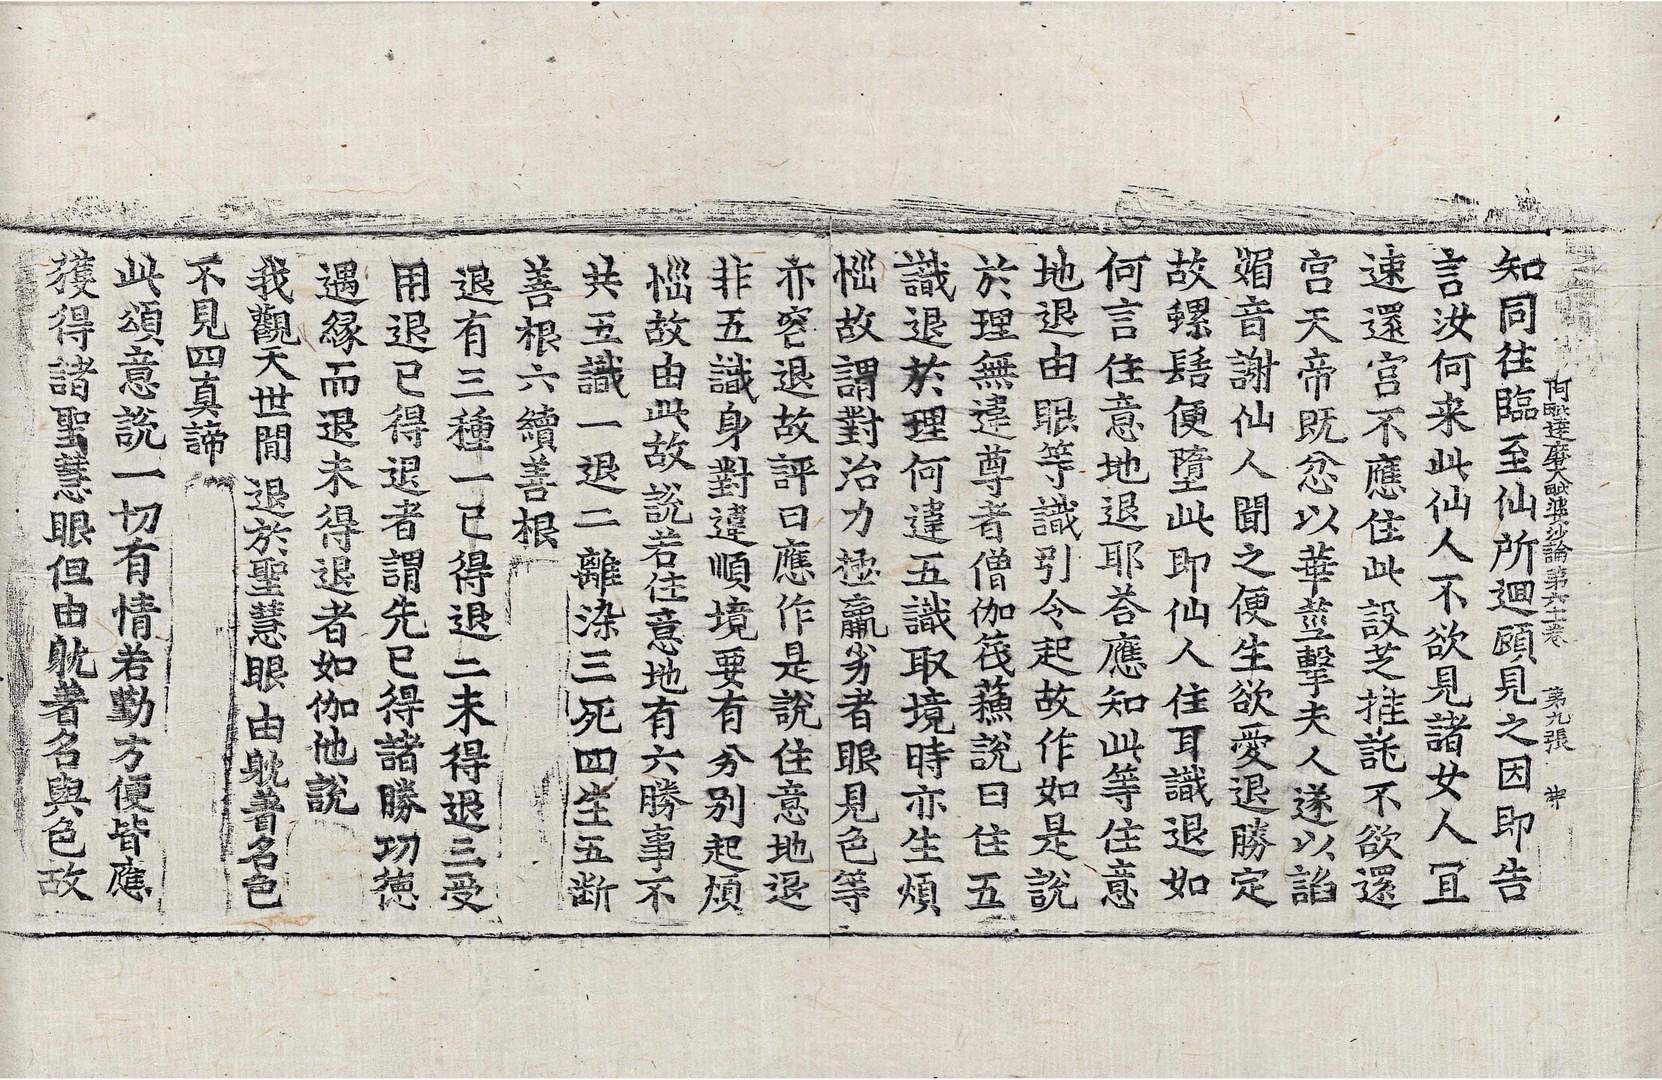 阿毗達磨大毗婆沙論第六十一卷 第九張
知同往臨至仙所迴頋見之因即告
言汝何来此仙人不欲見諸女人冝
速還宮不應住此設芝推託不欲還
宮天帝既忿以華莖擊夫人遂以諂
媚音謝仙人聞之便生欲愛退勝定
故螺髻便墮此即仙人住耳識退如
何言住意地退耶荅應知此等住意
地退由眼等識引令起故作如是說
於理無違尊者僧伽筏蘇說曰住五
識退於理何違五識取境時亦生煩
惱故謂對治力極羸劣者眼見色等
亦容退故評曰應作是說住意地退
非五識身對違順境要有分別起煩
惱故由此故說若住意地有六勝事不
共五識一退二離染三死四生五斷
善根六續善根
退有三種一已得退二未得退三受
用退已得退者謂先已得諸勝功徳
遇緣而退未得退者如伽他說
我觀天世間 退於聖慧眼 由躭著名色
不見四真諦
此頌意說一切有情若勤方便皆應
獲得諸聖慧眼但由躭著名與色故